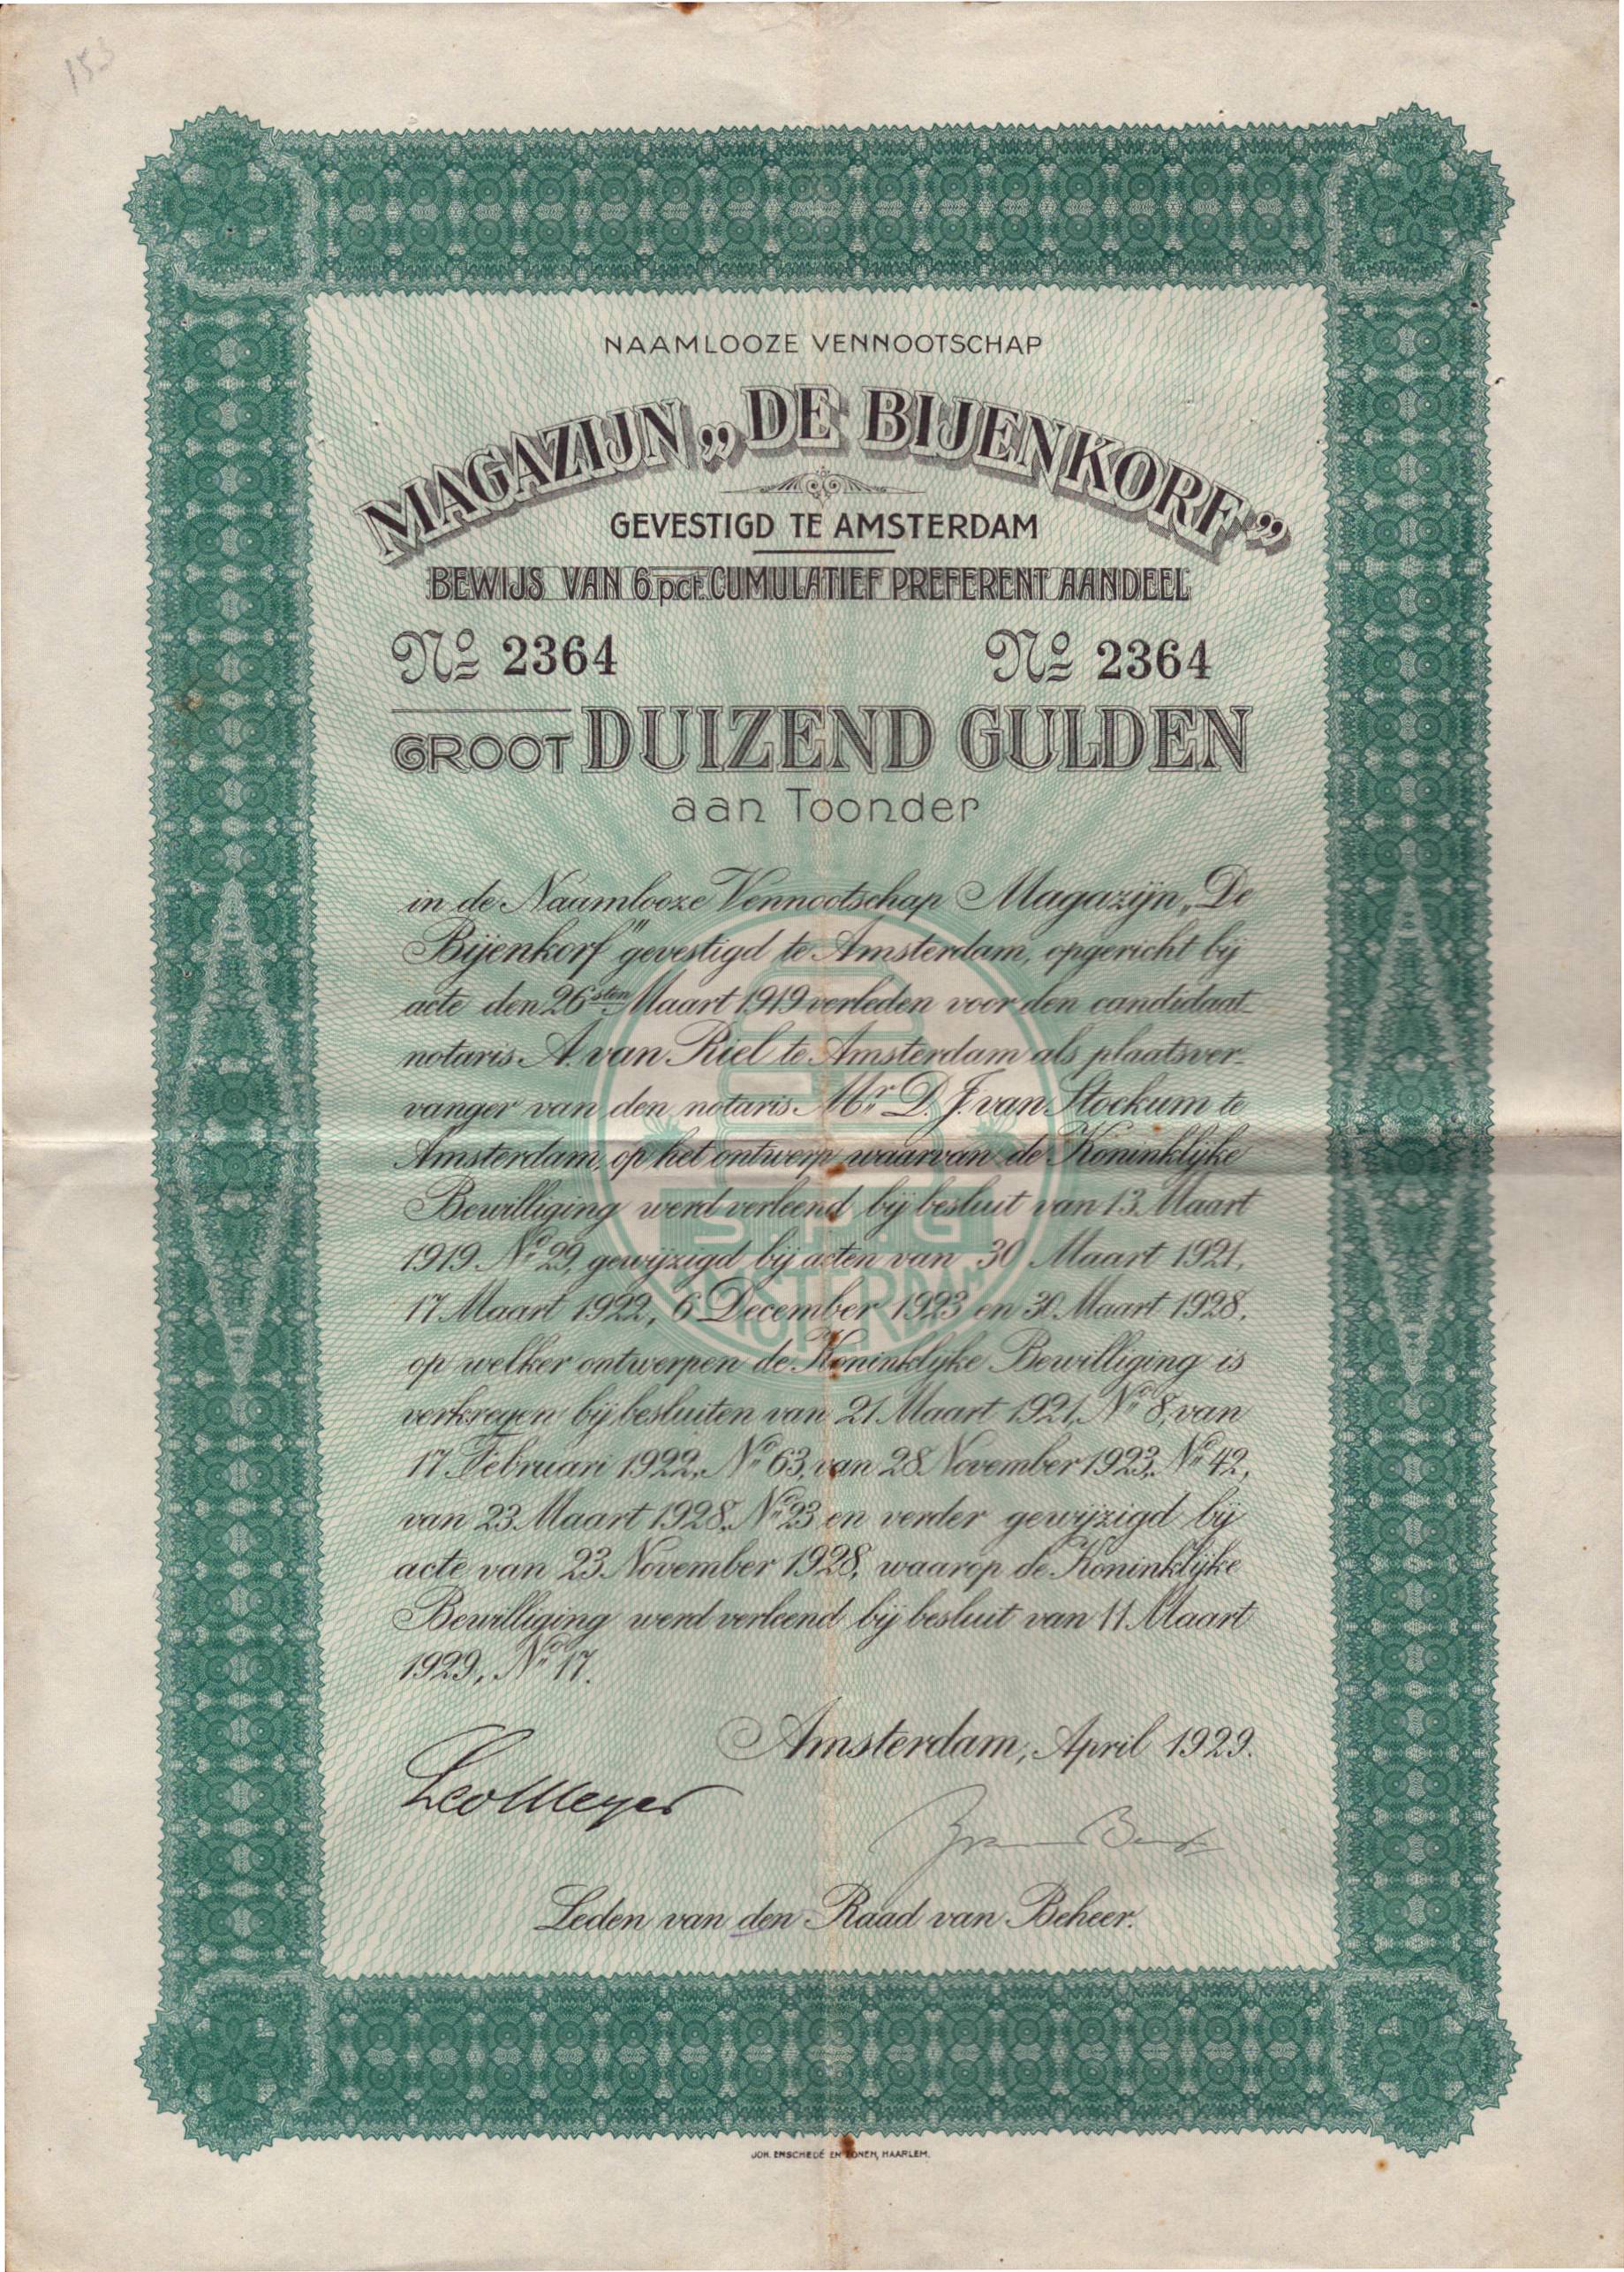 153
NAAMLOOZE VENNOOTSCHAP
MAGAZIJN „DE BIJENKORF”
GEVESTIGD TE AMSTERDAM
BEWIJS VAN 6 pct. CUMULATIEF PREFERENT AANDEEL
No 2364 No 2364
GROOT DUIZEND GULDEN
aan Toonder
in de Naamlooze Vennootschap Magazijn „De
Bijenkorf” gevestigd te Amsterdam, opgericht bij
acte den 26sten Maart 1919 verleden voor den candidaat-
notaris A. van Riel te Amsterdam als plaatsver-
vanger van den notaris Mr. D. J. van Stockum te
Amsterdam, op het ontwerp waarvan de Koninklijke
Bewilliging werd verleend bij besluit van 13 Maart
1919 No 29, gewijzigd bij acten van 30 Maart 1921,
17 Maart 1922, 6 December 1923 en 30 Maart 1928,
op welker ontwerpen de Koninklijke Bewilliging is
verkregen bij besluiten van 21 Maart 1921, No 8, van
17 Februari 1922, No 63, van 28 November 1923, No 42,
van 23 Maart 1928, No 23 en verder gewijzigd bij
acte van 23 November 1928, waarop de Koninklijke
Bewilliging werd verleend bij besluit van 11 Maart
1929, No 17.
S.P.G
AMSTERDAM
Amsterdam, April 1929.
Leo Meyer
Leden van den Raad van Beheer.
JOH. ENSCHEDÉ EN ZONEN, HAARLEM.